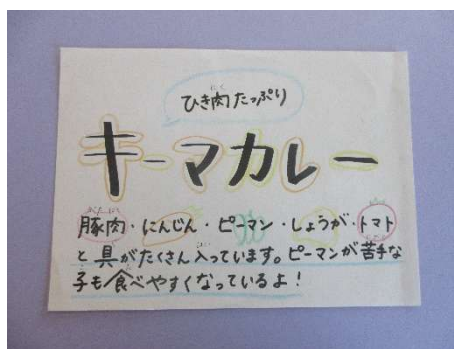 ひき肉たっぷり
キーマカレー
豚肉・にんじん・ピーマン・しょうが・トマト
と具がたくさん入っています。ピーマンが苦手な
子も食べやすくなっているよ！